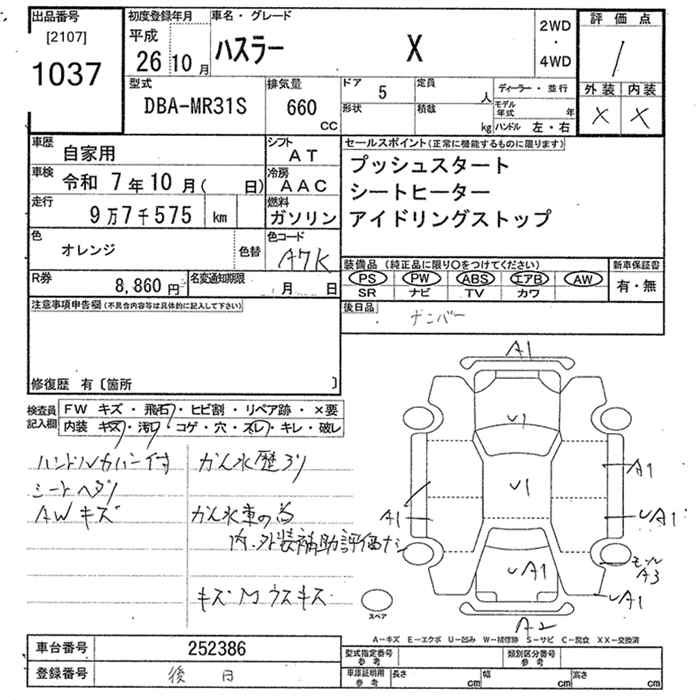 出品番号
[2107]
1037
初度登録年月
平成
26 10 月
車名・グレード
ハスラー X
2WD
・
4WD
評価点
1
外装 内装
× ×
型式
DBA-MR31S
排気量
660
cc
ドア 5
形状
定員 人
積載 kg
ディーラー・並行
モデル年式 年
ハンドル 左・右
車歴 自家用
シフト AT
車検 令和 7年10月( 日)
冷房 AAC
走行 9万7千575 km
燃料 ガソリン
色 オレンジ 色替
色コード A7K
R券 8,860円
名変通知期限 月 日
セールスポイント(正常に機能するものに限ります)
プッシュスタート
シートヒーター
アイドリングストップ
装備品(純正品に限り○をつけてください)
PS PW ABS エアB AW
SR ナビ TV カワ
新車保証書
有・無
後日品
ナンバー
注意事項申告欄(不具合内容等は具体的に記入して下さい)
修復歴 有〔箇所 〕
検査員記入欄
FW キズ・飛石・ヒビ割・リペア跡・×要
内装 キズ・汚れ・コゲ・穴・スレ・キレ・破レ
ハンドルカバー付
シートヘタリ
AWキズ
かん水歴あり
かん水車の為
内.外装補助評価ナシ
キズM ウスキズ
A1
U1
U1
A1
A1
UA1
UA1
モール
A3
UA1
A2
スペア
A－キズ E－エクボ U－凹み W－補修跡 S－サビ C－腐食 XX－交換済
車台番号 252386
登録番号 後日
型式指定番号
参考
類別区分番号
参考
車庫証明用
参考
長さ cm 幅 cm 高さ cm